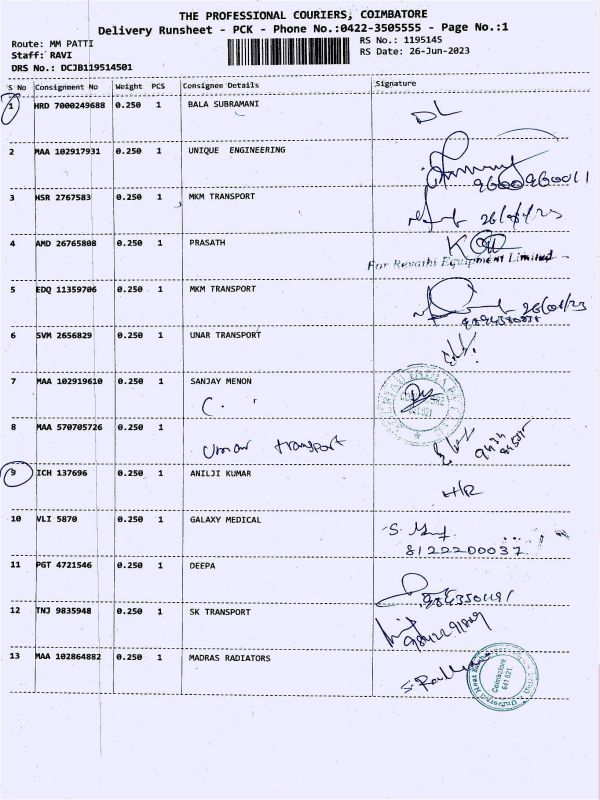 THE PROFESSIONAL COURIERS, COIMBATORE
Delivery Runsheet - PCK - Phone No.:0422-3505555 - Page No.:1
Route: MM PATTI RS No.: 1195145
Staff: RAVI RS Date: 26-Jun-2023
DRS No.: DCJB119514501
S No Consignment No Weight PCS Consignee Details Signature
1 HRD 7000249688 0.250 1 BALA SUBRAMANI DL
2 MAA 102917931 0.250 1 UNIQUE ENGINEERING
9600960011
3 HSR 2767583 0.250 1 MKM TRANSPORT
4 AMD 26765808 0.250 1 PRASATH
For Revathi Equipment Limited
5 EDQ 11359706 0.250 1 MKM TRANSPORT
6 SVM 2656829 0.250 1 UNAR TRANSPORT
7 MAA 102919610 0.250 1 SANJAY MENON
8 MAA 570705726 0.250 1
Umar transport
9 ICH 137696 0.250 1 ANILJI KUMAR
10 VLI 5870 0.250 1 GALAXY MEDICAL
8122200037
11 PGT 4721546 0.250 1 DEEPA
12 TNJ 9835948 0.250 1 SK TRANSPORT
13 MAA 102864882 0.250 1 MADRAS RADIATORS
Coimbatore
641 621.